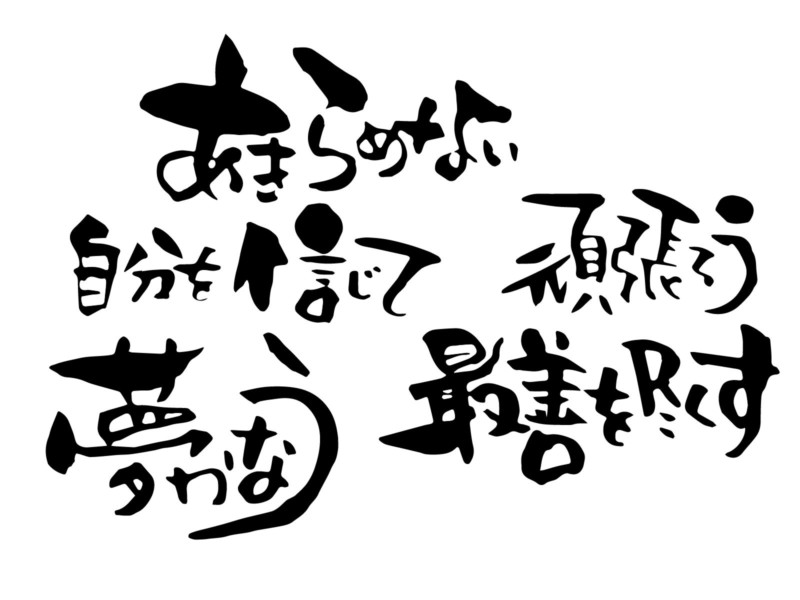 あきらめない
自分を信じて
頑張ろう
夢かなう
最善を尽くす